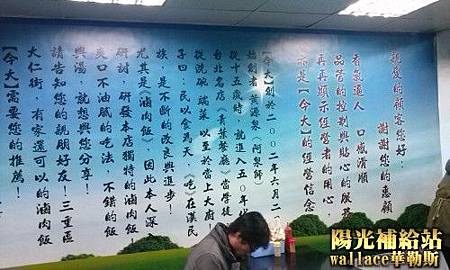 親愛的顧客您好：
謝謝您的惠顧
香氣逼人 口感滑順
品管的控制與貼心的服務
再再顯示經營者的用心，
是【今大】的經營信念
【今大】創於二〇〇二年六月二
始創者 黃源泉(阿梨師)
從十五歲時 就進入五〇年
台北名店《青葉餐廳》當學徒
從洗碗 端菜 以至於當上大廚！
子曰：民以食為天《吃》在漢民
族，是不斷的改良與進步！
尤其是《滷肉飯》因此本人深
研討，研發本店獨特的滷肉飯
爽口不油膩的吃法，不錯的飯
與湯，就想與您分享！
請告知您的親朋好友！三重區
大仁街，有家還可以的滷肉飯
【今大】需要您的推薦！
陽光補給站
wallace華勒斯